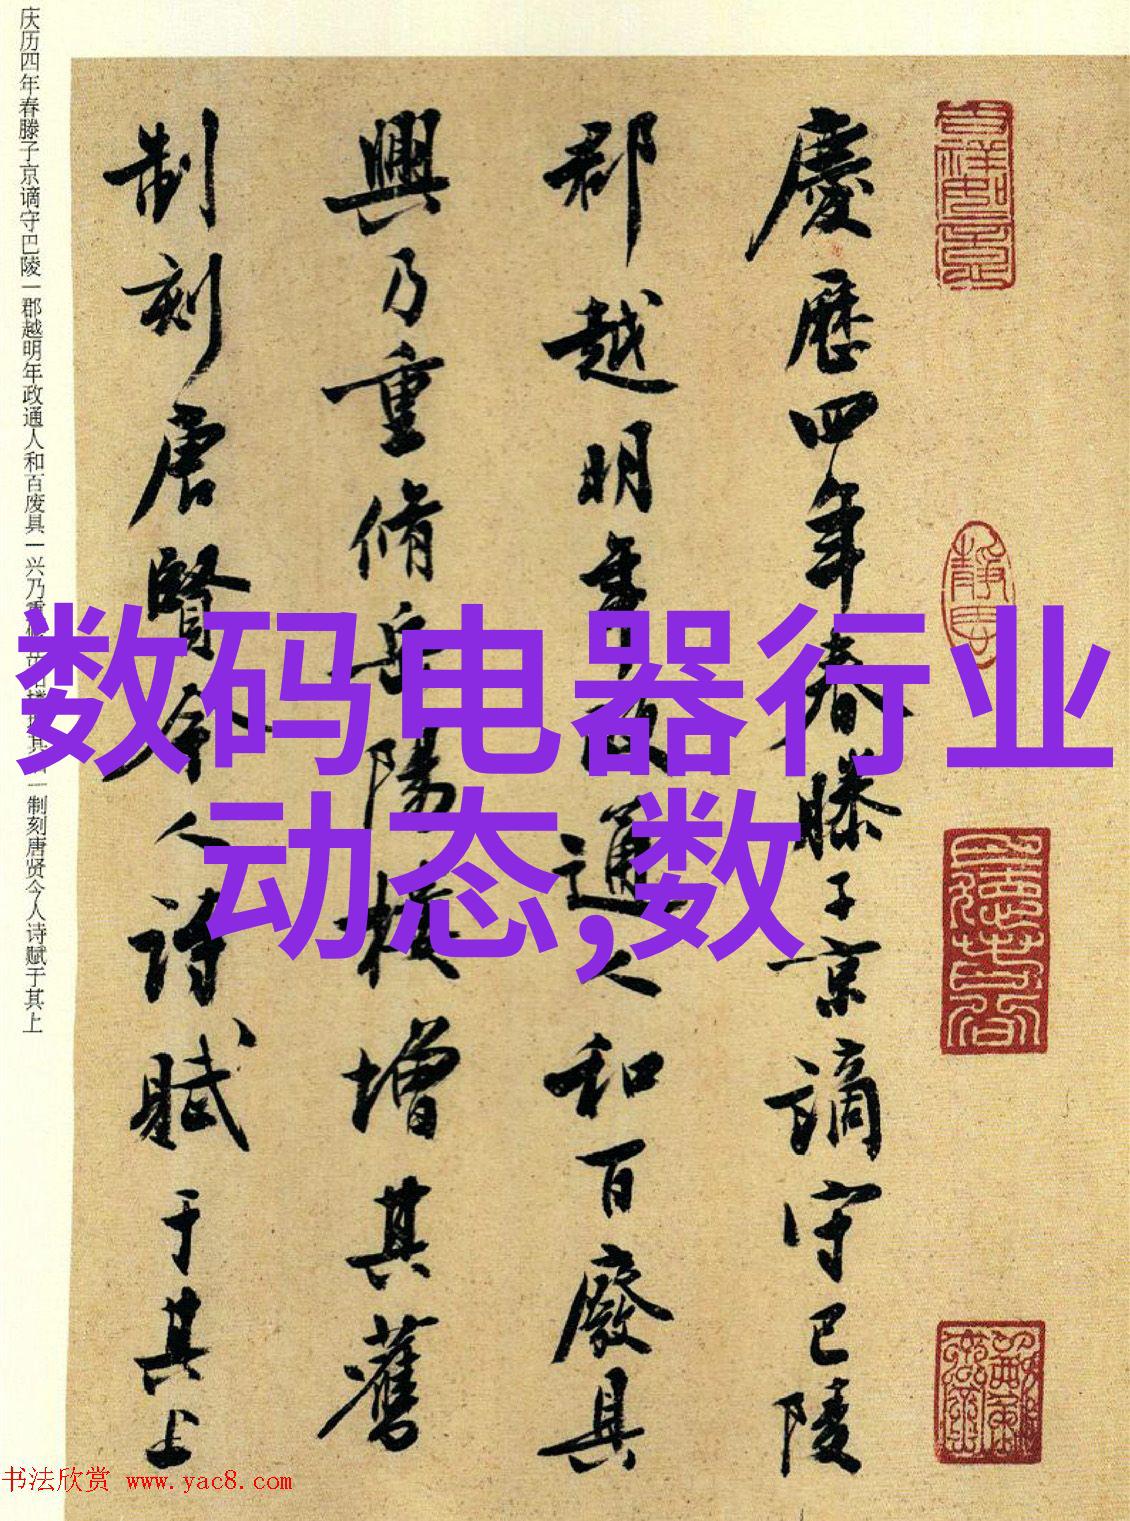 慶歷四年春滕子京謫守巴陵
郡越明年政通人和百廢具
興乃重脩岳陽樓增其舊
制刻唐賢今人詩賦于其上
庆历四年春滕子京谪守巴陵一郡越明年政通人和百废具一兴乃重修岳阳楼增其旧一制刻唐贤今人诗赋于其上
数码电器行业
动态,数
书法欣赏 www.yac8.com